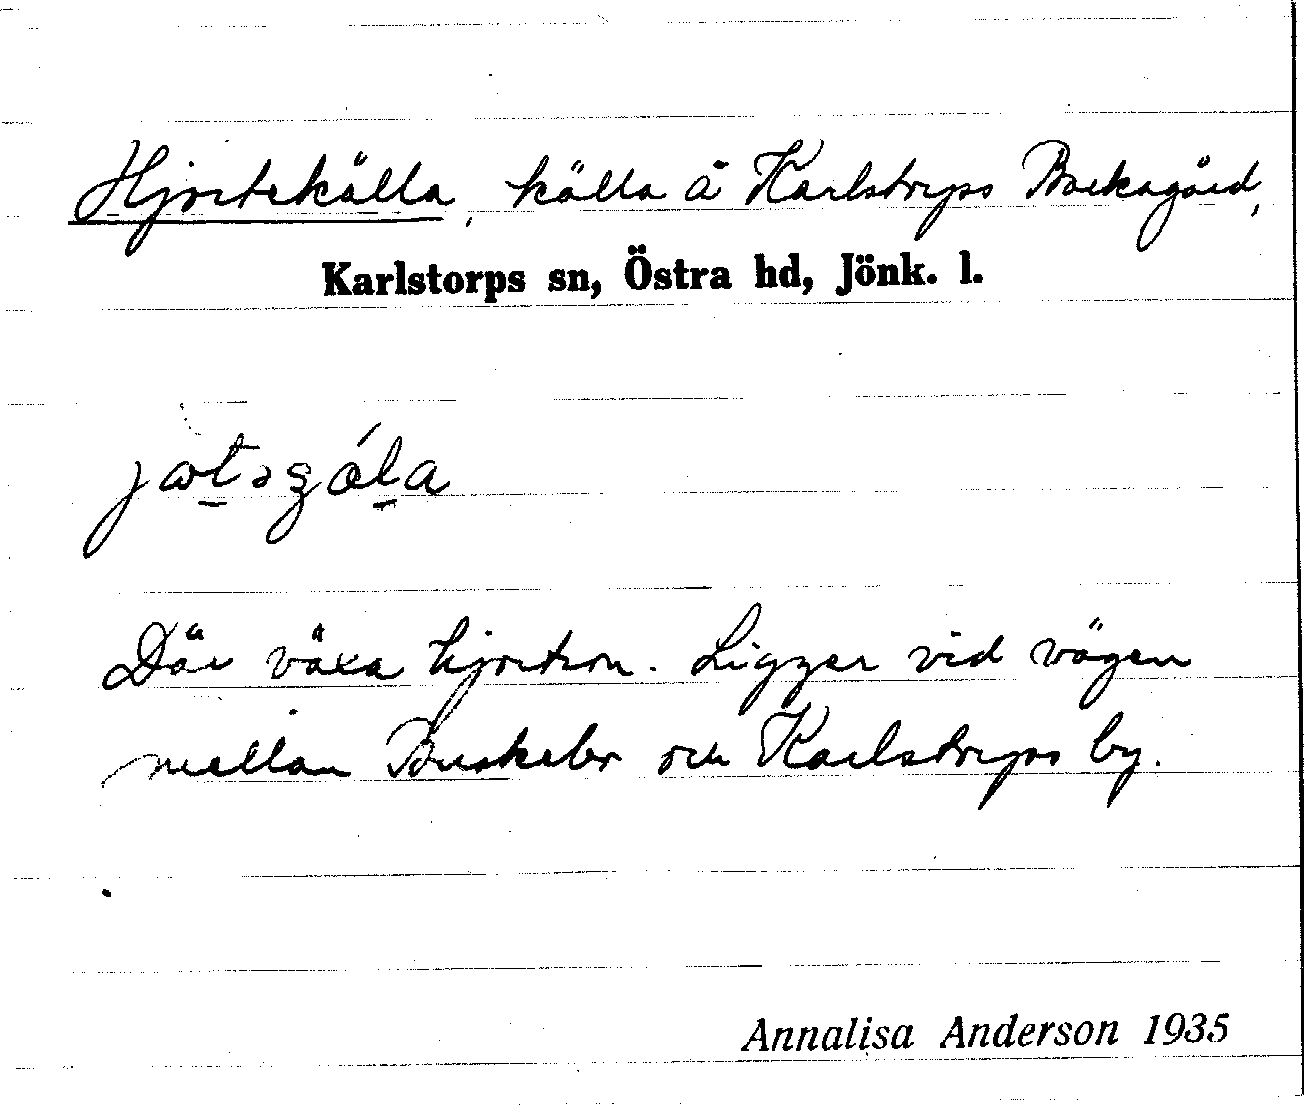 Hjortekälla, källa å Karlstorps Backagård,
Karlstorps sn, Östra hd, Jönk. l.
Där växa hjortron. Ligger vid vägen
mellan och Karlstorps by.
Annalisa Anderson 1935